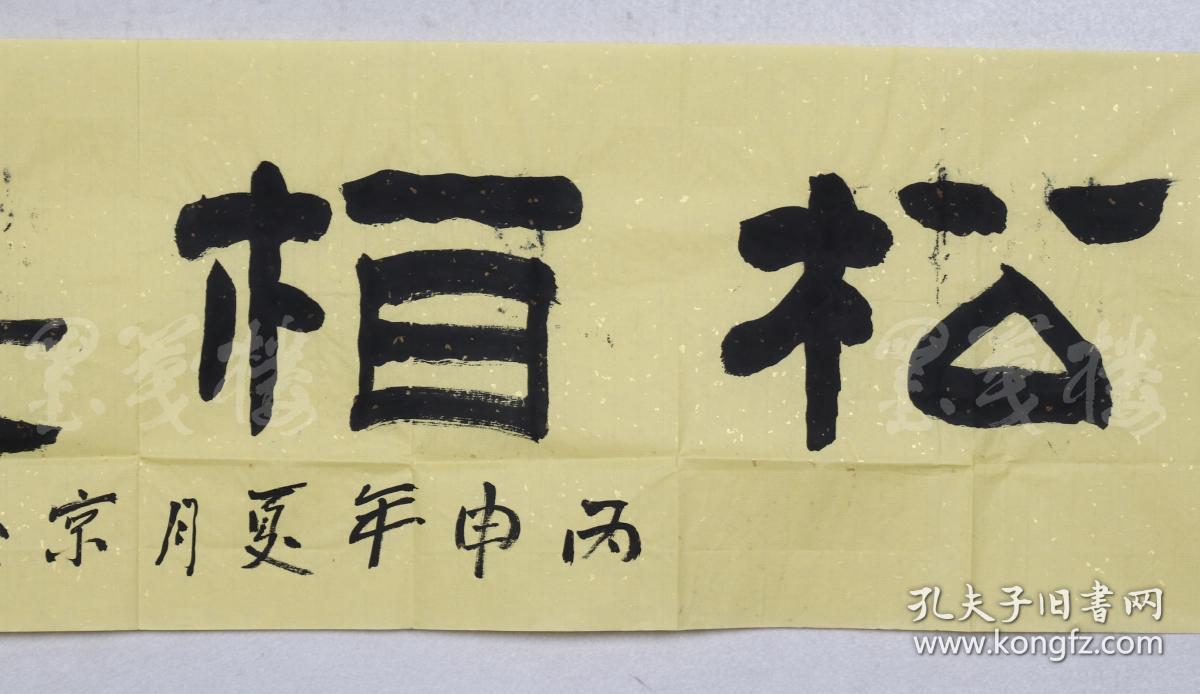 松柏
丙申年夏月京
孔夫子旧書网
www.kongfz.com
墨笺楼
墨笺楼